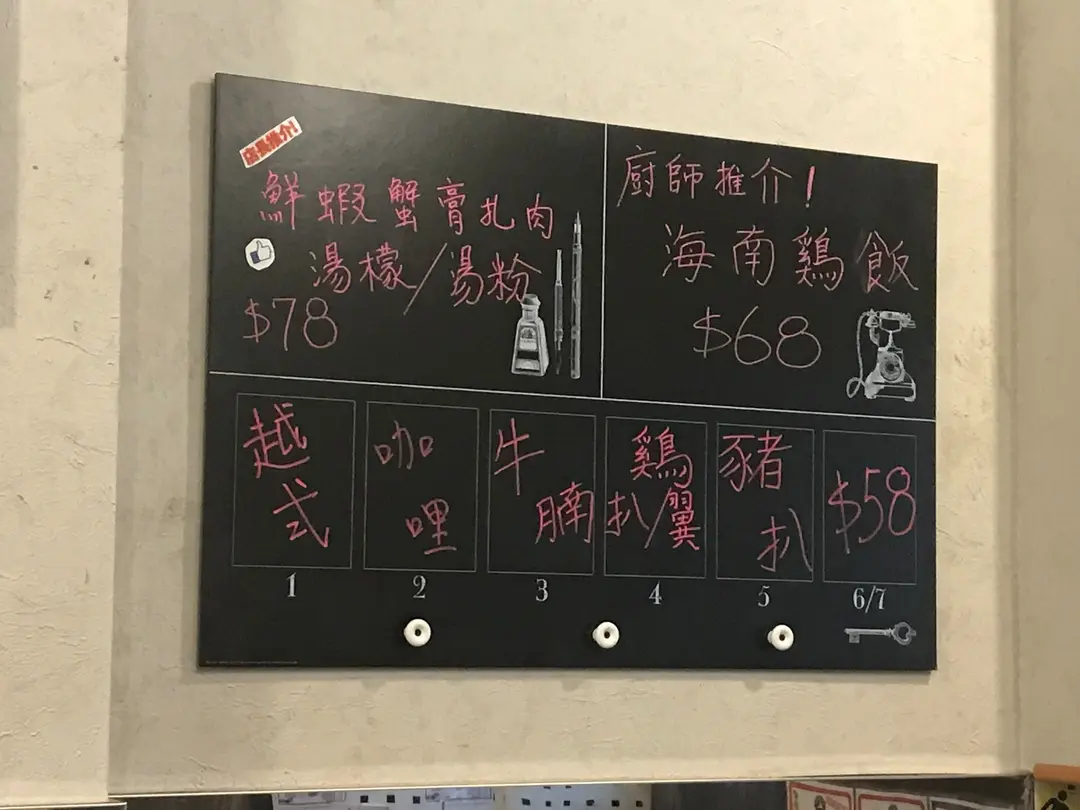 店長推介!
鮮蝦蟹膏扎肉
湯檬/湯粉
$78
廚師推介!
海南鷄飯
$68
越式
咖哩
牛腩
鷄扒/翼
豬扒
$58
1
2
3
4
5
6/7